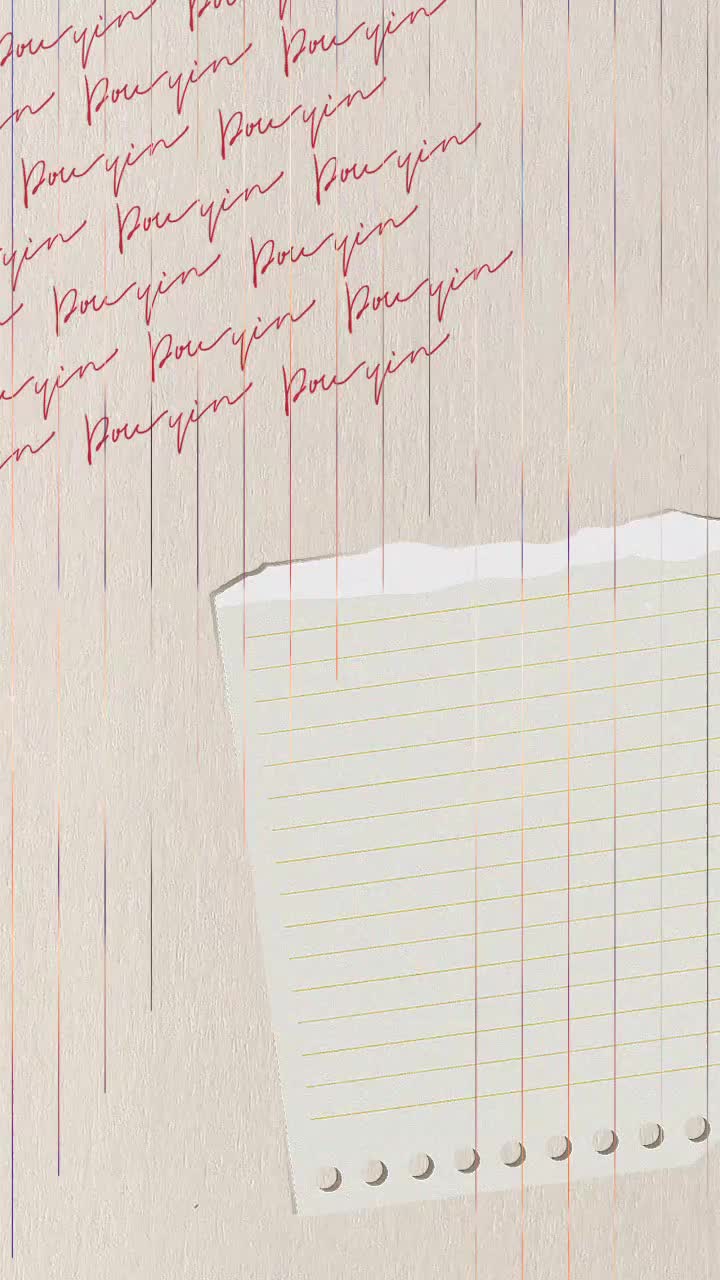 Douyin Douy
n Douyin Douyin
Douyin Douyin
yin Douyin Douyin
Douyin Douyin
uyin Douyin Douyin
in Douyin Douyin